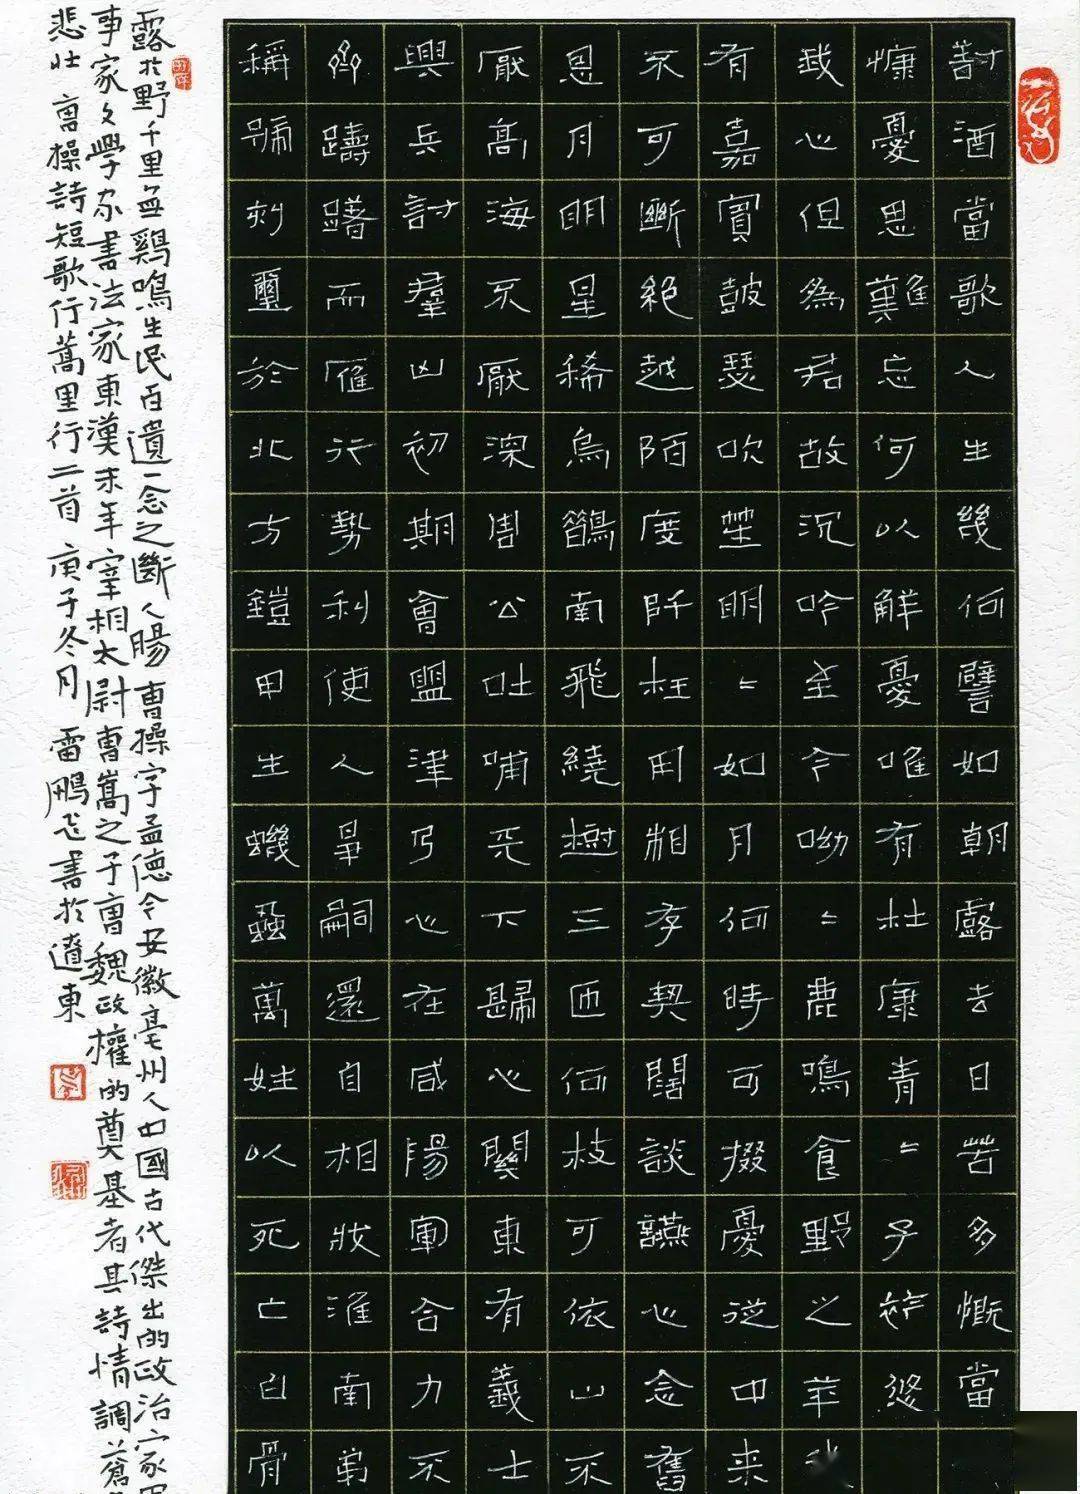 對酒當歌人生幾何譬如朝露去日苦多慨當
慷憂思難忘何以解憂唯有杜康青〻子衿悠
我心但為君故沉吟至今呦〻鹿鳴食野之苹我
有嘉賓鼓瑟吹笙明〻如月何時可掇憂從中来
不可斷絕越陌度阡枉用相存契闊談讌心念舊
恩月明星稀烏鵲南飛繞樹三匝何枝可依山不
厭高海不厭深周公吐哺天下歸心關東有義士
興兵討羣凶初期會盟津乃心在咸陽軍合力不
齊躊躇而雁行勢利使人爭嗣還自相戕淮南弟
稱號刻璽於北方鎧甲生蟣蝨萬姓以死亡白骨
露於野千里無鷄鳴生民百遺一念之斷人腸 曹操字孟德今安徽亳州人中國古代傑出的政治家軍
事家文學家書法家東漢末年宰相太尉曹嵩之子曹魏政權的奠基者其詩情調蒼
悲壯 曹操詩短歌行蒿里行二首 庚子冬月 雷鵬飞書於遼東